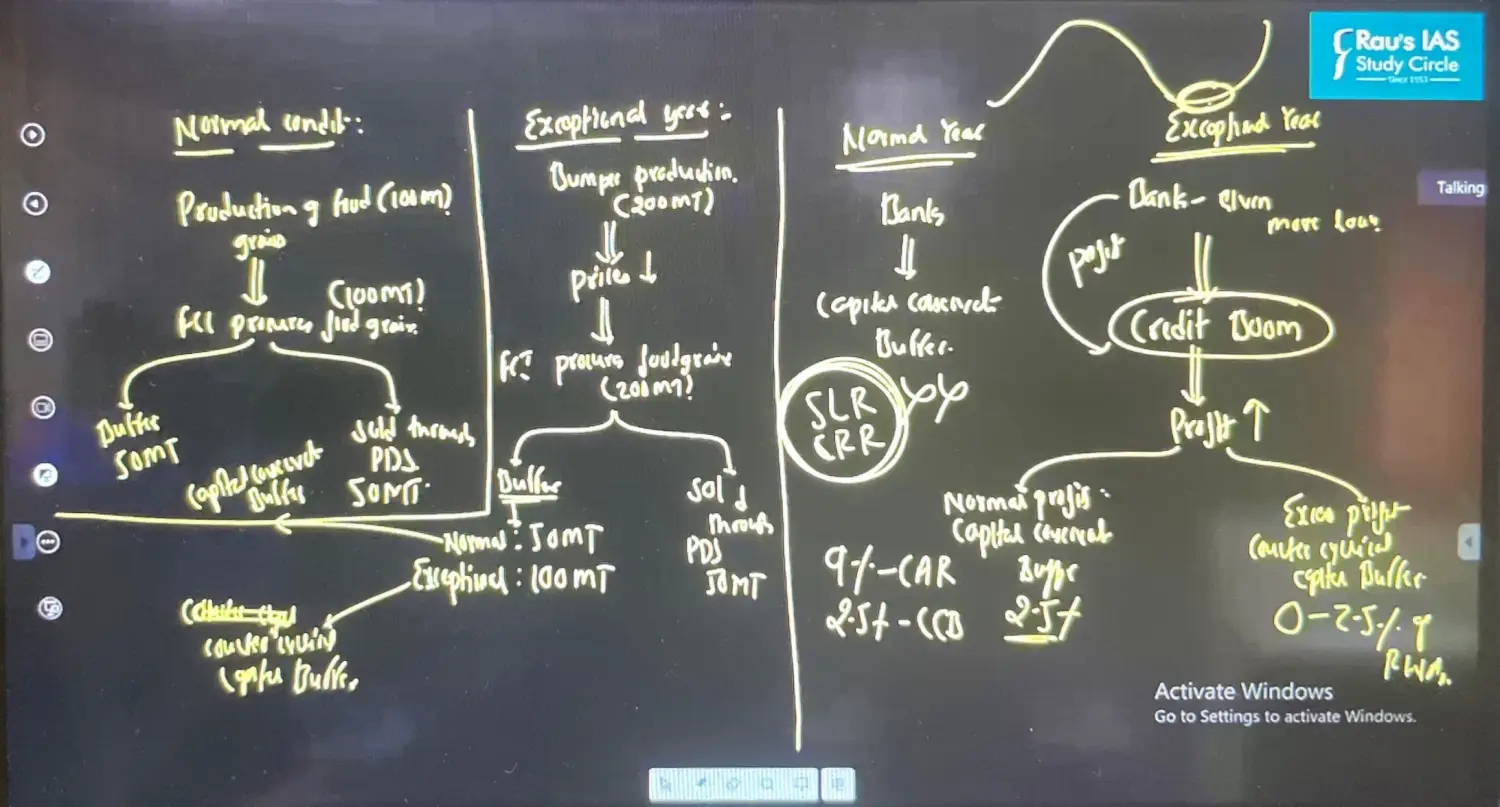 Rau's IAS
Study Circle
Since 1953
Normal condit:
Production of food (100m)
grains
(100MT)
FCI procures food grain.
Buffer
50MT
Sold through
PDS
50MT.
Capital conservat
Buffer
Exceptional year:
Bumper production.
(200MT)
Prices ↓
FCI procures foodgrains
(200MT)
Buffer
Normal: 50MT
Exceptional: 100MT
Sol
through
PDS
50MT
counter cyclical
Capital Buffer.
Normal Year
Banks
Capital conservat
Buffer.
SLR
CRR
9%-CAR
2.5%-CCB
Exceptional Year
Bank - given
more loan
profit
Credit Boom
Profit ↑
Normal profit:
Capital conservat
Buffer
2.5%
Excess profit
Counter cyclical
Capital Buffer
0-2.5% of
RWAs.
Talking
Activate Windows
Go to Settings to activate Windows.